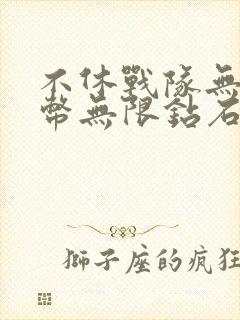 不休戰隊無
幣無限鉆石
獅子座的瘋狂